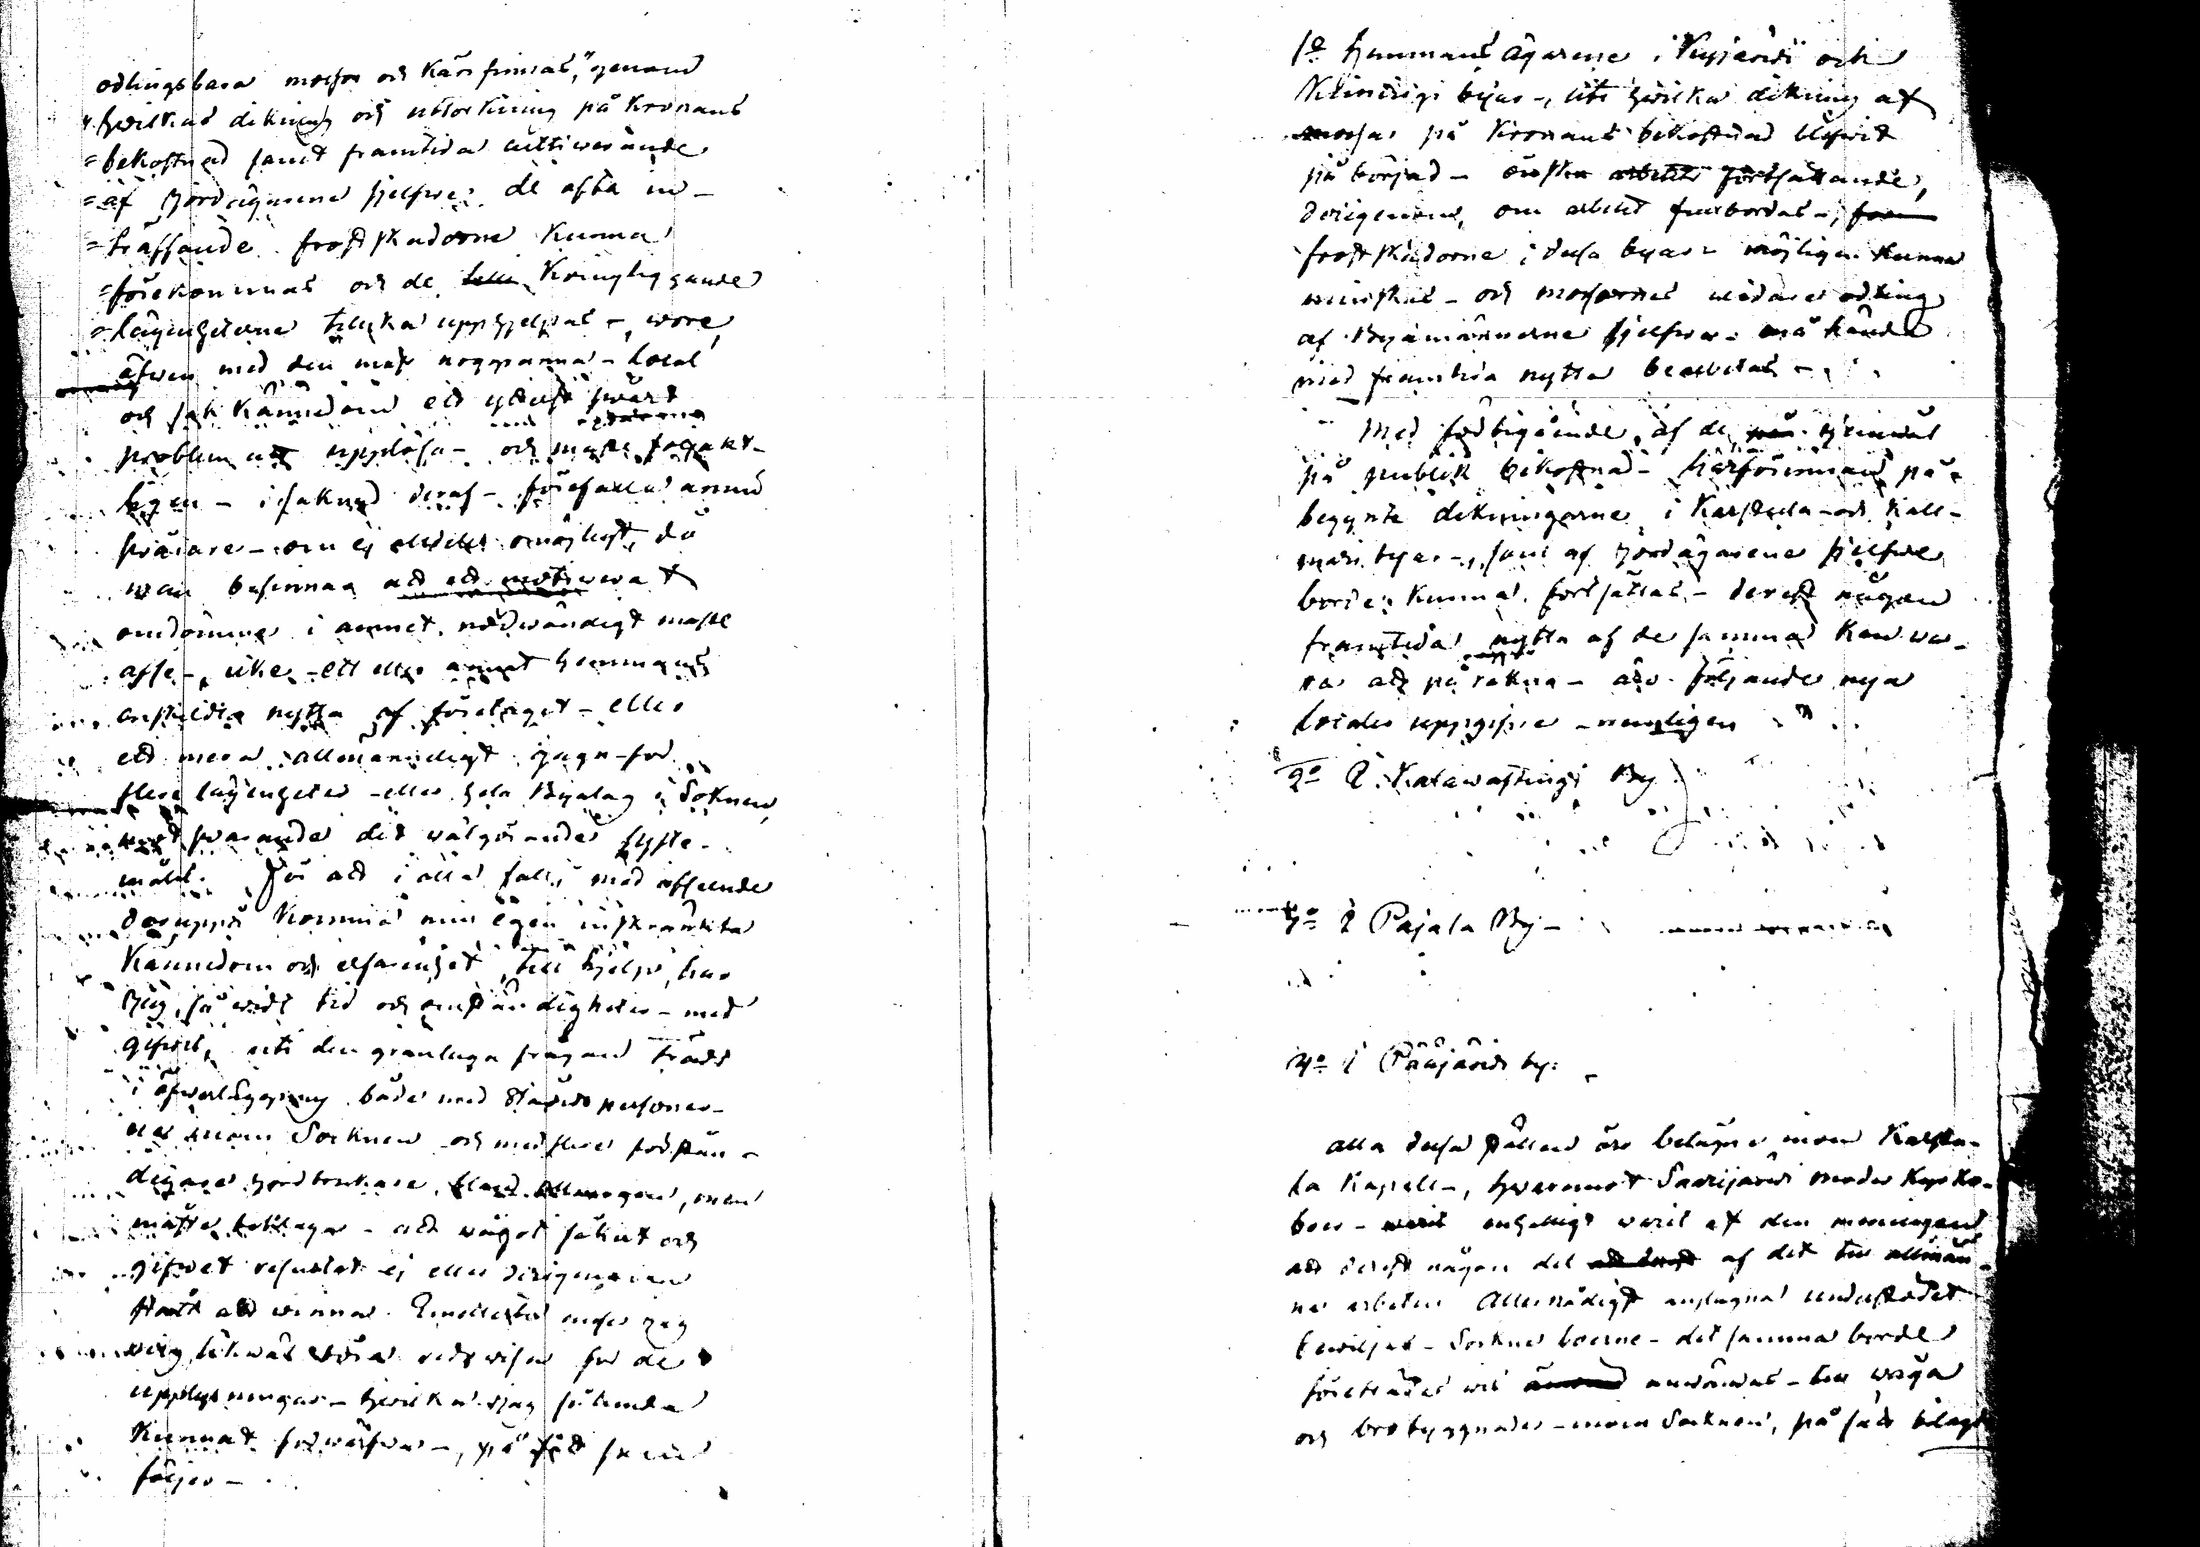 odlingsbara mossar och kärr finnas, "genom
"hwilkas dikning och uttorkning på Kronans
=bekostnad samt framtida cultiverande
=af Jordägarene sjelfwe, de ofta in-
=träffande frostskadorne kunna
=förekommas och de kringliggande
=lägenheterne tillika upphjelpas -, wore
äfwen med den mäst noggranna - Local
och sak kännedom ett ytterst swårt
problem att upplösa - och måste
- i saknad deraf - förefalla ännu
swårare - om ej alldeles omöjligt, då
man besinnar att ett
omdöme i ämnet, nödwändigt måste
afse -, icke - ett eller annat hemmans
enskildta nytta af företaget - eller
ett mera allmänneligt gagn - för
flere lägenheter - eller hela Byalag i Soknen,
motswarande det wälgörande syfte-
målet. För att i alla fall, med afseende
deruppå komma min egen inskränkta
Kännedom och erfarenhet till hjelp, har
jag, så widt tid och omständigheter - med
gifwit, uti den grannlaga frågan trädt
i öfwerläggning både med Stånds personer-
ne inom Socknen - och med flere förstån-
digare jordbrukare, men
måste beklaga - att något säkert och
gifwet resultat ej eller derigenom
stått att winna. Emellertid anser jag
mig likwäl böra redowisa för de
upplysningar - hwilka jag sålunda
Kunnat förwärfwa -, på sätt som
följer -
1o Hemmans ägarene i Kyyjärwi och
Nlinivigi byar -, uti hwilka dikning af
mossar på Kronans bekostnad blifwit
på börjad - önska fortsättande,
derigenom, om arbetet fullbordas -,
frostskadorne i dessa byar - möjligen kunna
minskas - och mossarnes widare odling
af Byamännerne sjelfwe - må hända
med framtida nytta bearbetas -
Med förbigående af de
på publik bekostnad - härförinnan på-
begynte dikningarne i Karstula - och Kall-
mari byar -, som af jordägarene sjelfwe
borde kunna fortsättas - derest någon
framtida nytta af de samma kan wa-
ra att påräkna - äro följande nya
Locales uppgifne - nemligen
2o I Kalawastingi By
3o I Pajala By -
4o I Pääjärwi by:
alla dessa ställen äro belägne inom Karstu-
la Kapell -, hwaremot Saarijärwi moder Kyrko-
boer - enhelligt warit af den meningen
att derest någon del af det till allmän-
na arbeten Allernådigst anslagna understödet
bewiljas - Sockne boerne - det samma borde
företrädes wis användas - till wäga
och brobyggnader - inom Socknen, på sätt bilagde